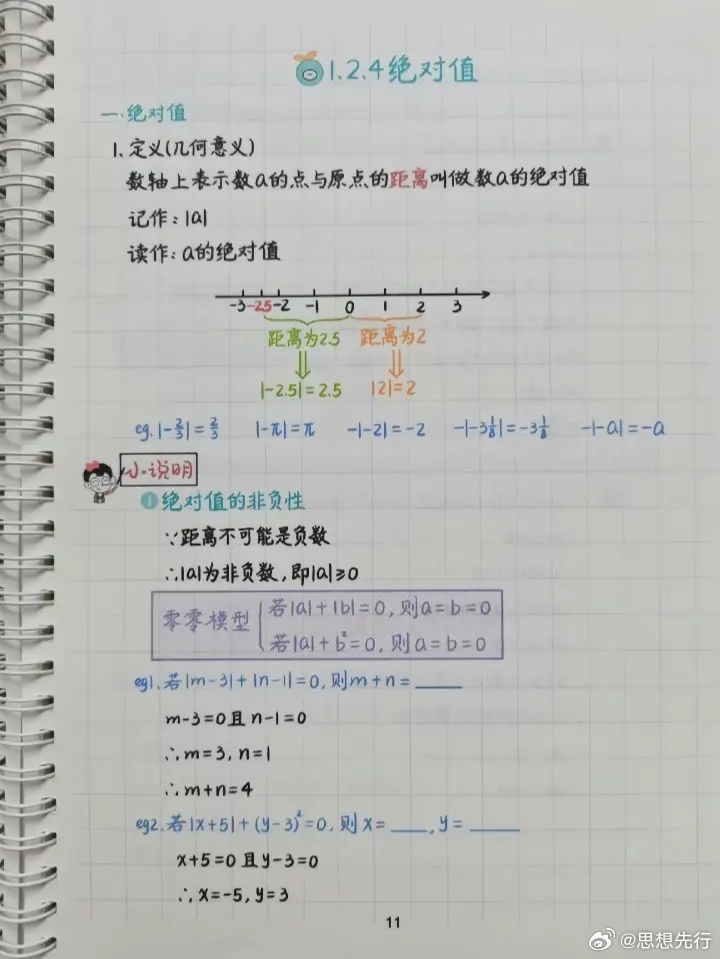 1.2.4绝对值
一.绝对值
1.定义(几何意义)
数轴上表示数a的点与原点的距离叫做数a的绝对值
记作：|a|
读作：a的绝对值
-3 -2.5 -2 -1 0 1 2 3
距离为2.5 距离为2
|-2.5|=2.5 |2|=2
eg. |-2/3|=2/3 |-π|=π -|-2|=-2 -|-3 1/8|=-3 1/8 -|-a|=-a
小说明
❶绝对值的非负性
∵距离不可能是负数
∴|a|为非负数，即|a|≥0
零零模型 { 若|a|+|b|=0，则a=b=0
若|a|+b²=0，则a=b=0
eg1.若|m-3|+|n-1|=0，则m+n=____
m-3=0且n-1=0
∴m=3，n=1
∴m+n=4
eg2.若|x+5|+(y-3)²=0，则x=____，y=____
x+5=0且y-3=0
∴x=-5，y=3
11
@思想先行